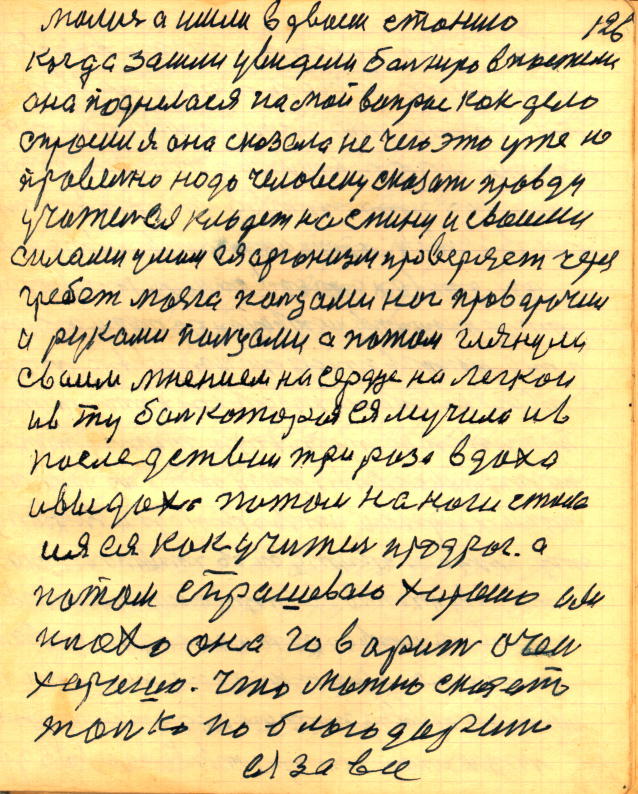 малия а шли вдвоем стоншо 126
когда зашли увидели болную впостели
она поднялася на мой вопрос как дело
спросил я она сказала не чего это уже но
провелно надо человеку сказат правду
учител ея кладет на спину и своими
силами умом ея арганизм проверяет через
гребет мозга палцами ног проварочки
и руками палцами а потом глянули
своим мнением на сердце на легкои
ив ту бол котороя ея мучила ив
последствии три раза вдоха
ивыдох. потом на ноги стана
ил ея как учител продрог. а
потом спрашеваю харошо или
плохо она говарит очен
харашо. Что можно сказать
толко по благодарит
ея за все